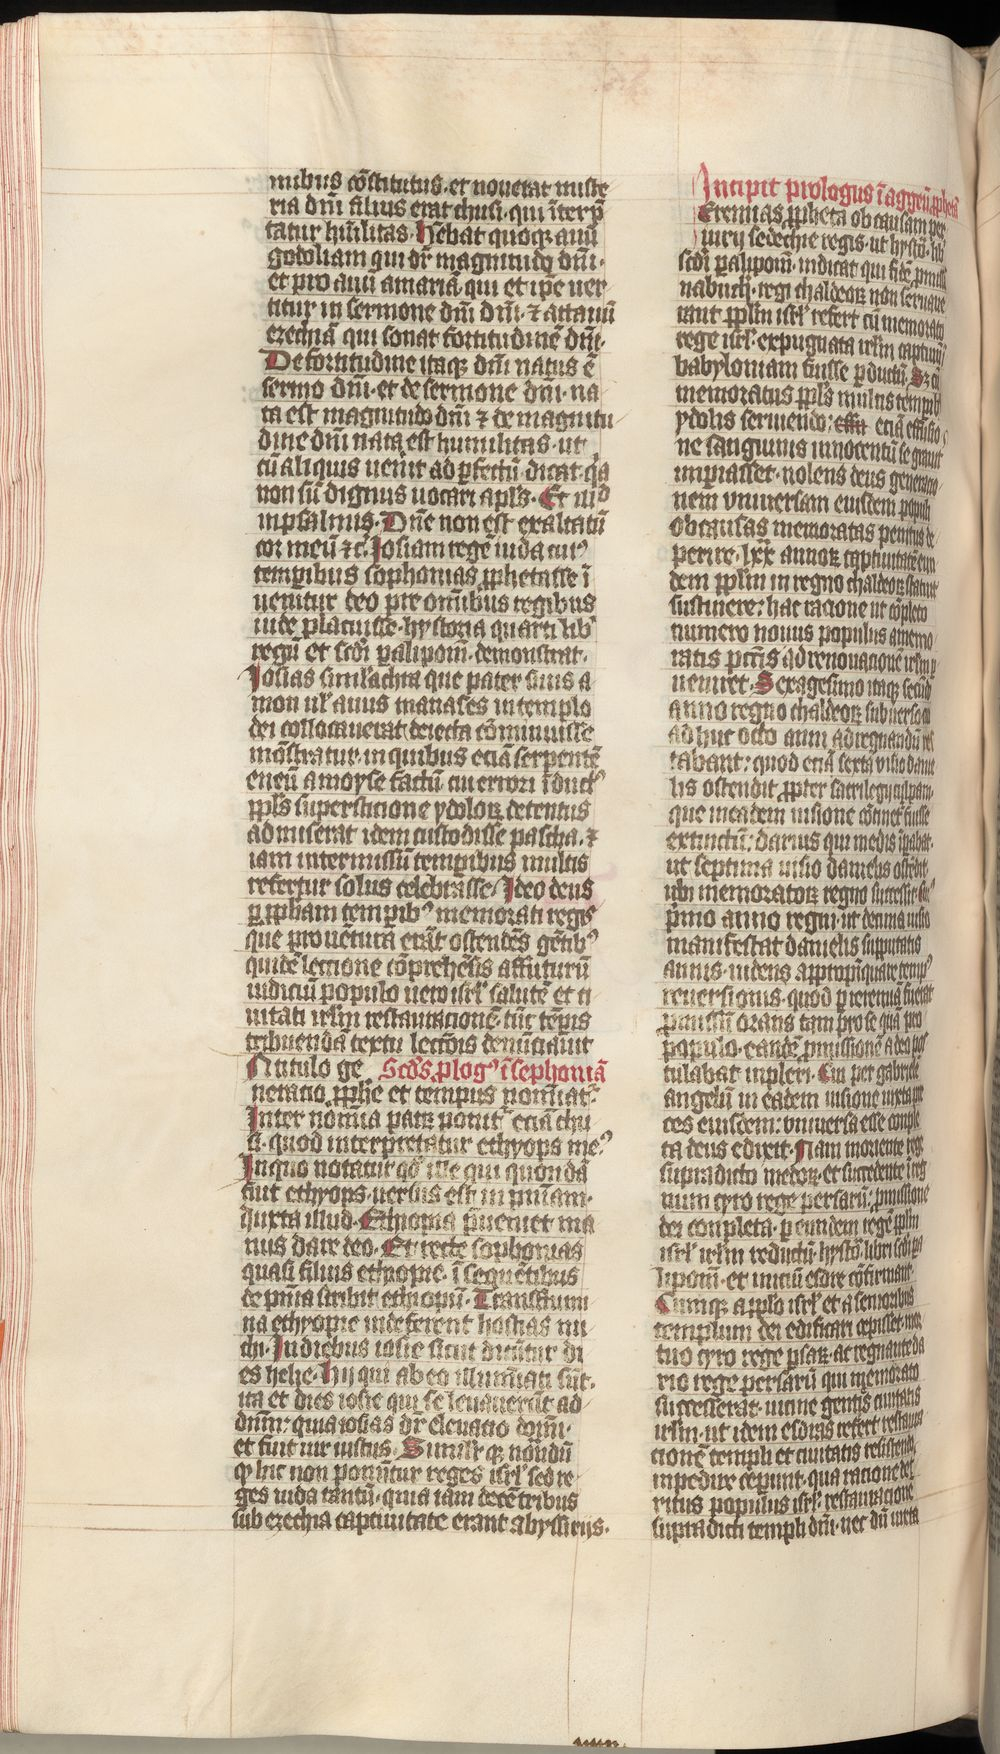 mibus cōstitutus·et nouerat miste
ria dn̄i filius erat chusi·qui īterp̄
tatur hūilitas·Hēbat quoqꝫ auū
godoliam qui dr̄ magnitudo dn̄i·
et pro auū amariā qui et ip̄e uer
titur in sermone dn̄i dn̄i·⁊ attauū
ezechiā qui sonat fortitudinē dn̄i·
De fortitudine itaqꝫ dn̄i natus ē
sermo dn̄i·et de sermone dn̄i·na
ta est magnitudo dn̄i ⁊ de magnitu
dine dn̄i nata est humilitas·ut
cū aliquis uen̄it ad ꝑfectū·dicat·q̄a
non sū dignus uocari apl̄s·Et iƚƚd
in psalmis·Dn̄e non est exaltatū
cor meū ⁊c̄·Josiam regē iuda cui⁹
temꝑibus sophonias ꝓphetasse ī
uenitur deo pre om̄ibus regibus
iude placuisse·hystoria quarti lib̄
regū et scd̄i ꝑalipom̄·demonstrat·
Josias simlachra que pater suus a
mon ul̄ auus manases in templo
dei collocauerat deiecta cōminuisse
mōstratur·in quibus eciā serpentē
eneū a moyse factū cui errori īduct⁹
ppl̄s superstitione ydoloꝝ detentus
admiserat idem custodisse pascha·⁊
iam intermissū temꝑibus multis
refertur solus celebrasse·Ideo deus
ꝑ ip̄ham temꝑib⁹ memorati regis
que prouētura erāt ostendēs gētib⁹
quidē lectione cōprehēsis affuturū
iudiciū populo uero isrl̄ salutē et ci
uitati irl̄m restauracionē·tūc tēꝑis
tribuendā textu lectōis denūciauit
Titulo ge Scd̄s ꝓlog⁹ ī sephoniā
neratio ꝓphe et tempus nomīat⁻·
Inter nōmīa patꝝ ponit⁻ eciā chu
si·quod interpretatur ethyops me⁹
In quo notatur qd̄ ille qui quondā
fuit ethyops·uersus est in pn̄iam·
Juxta illud·Ethiopia p̄ueniet ma
nus dare deo·Et recte sophonias
quasi filius ethiopie·ī sequētibus
de pn̄ia scribit ethiopū·Transflumi
na ethyopie inde ferent hostias mi
chi·In diebus iosie sicut dicūtur di
es helie·Hij qui ab eo illumīati sūt·
ita et dies iosie qui se leuauerūt ad
dnm̄·quia iosias dr̄ eleuatio domī·
et fuit uir iustus·Similr̄ qꝫ nōndū
ꝙ hic non ponūtur reges isrl̄ sed re
ges iuda tantū·quia iam decē tribus
sub ezechia captiuitate erant abyssirijs·
Incipit prologus ī aggeū ꝓphetā
Ieremias ꝓpheta ob causam per
iurij sedechie regis·ut hysto·lib̄
scd̄i ꝑalipom̄·indicat qui fidē ꝓmissā
nabuch·regi chaldeoꝝ non seruaue
rant ppl̄m isrl̄ refert cū memorato
rege isrl̄·expugnata irl̄m captiuū
babyloniam fuisse ꝑductū·Sꝫ cū
memoratus ppl̄s multis tempib⁹
ydolis seruiendo·effu eciā effusio
ne sanguinis innocentū se grauit
impiasset·nolens deus generatio
nem vniuersam eiusdem populi
ob causas memoratas penitus de
perire·lxx annoꝝ captiuitatē eun
dem ppl̄m in regno chaldeoꝝ statuit
sustinere·hac racione ut cōpleto
numero nouus populus a memo
ratis pctīs ad renouationē irl̄m ꝑ
ueniret·Sexagesimo itaqꝫ secūdo
anno regno chaldeoꝝ subuerso cū
adhuc octo anni ad regnandū res
tabant·quod eciā sexta visio danie
lis ostendit ꝓpter sacrilegij culpam·
que in eadem uisione cōtinet⁻ fuisse
extinctū·darius qui medis īꝑabat·
ut septima uisio danielis ostēdit·
ubi memoratoꝝ regno successit·Cui⁹
ꝓmo anno regni·ut decima uisio
manifestat danielis supputatis
annis·uidens appropīquare temp⁹
reuersionis·quod ꝑ ieremiā fuerat
ꝓmissū orans tam pro se quā pro
populo·eandē ꝓmissionē a deo pos
tulabat inpleri·Cui per gabriele
angelū in eadem uisione iuxta pre
ces eiusdem·vniuersa esse comple
ta deus edixit·Nam moriente rege
supradicto medoꝝ·et succedente ī reg
num cyro rege persarū·ꝓmissione
dei conpleta·ꝑ eundem regē ppl̄m
isrl̄ irl̄m reductū·hysto·libri scd̄i pa
lipom̄·et iniciū esdre cōfirmant·
Cumqꝫ a ppl̄o isrl̄ et a senioribus
templum dei edificari cepisset·mor
tuo cyro rege ꝑsaꝝ·ac regnante da
rio rege persarū qui memorato
successerat·uicine gentis ciuitatis
irl̄m·ut idem esdras refert restaura
cionē templi et ciuitatis resistendo
inpedire ceperunt·qua racione det
ritus populus isrl̄·restauracione
supradicti templi dn̄i·nec dū iuxta